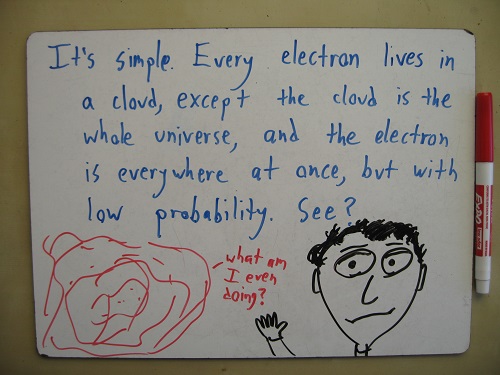 It's simple. Every electron lives in
a cloud, except the cloud is the
whole universe, and the electron
is everywhere at once, but with
low probability. See?
what am
I even
doing?
EXPO